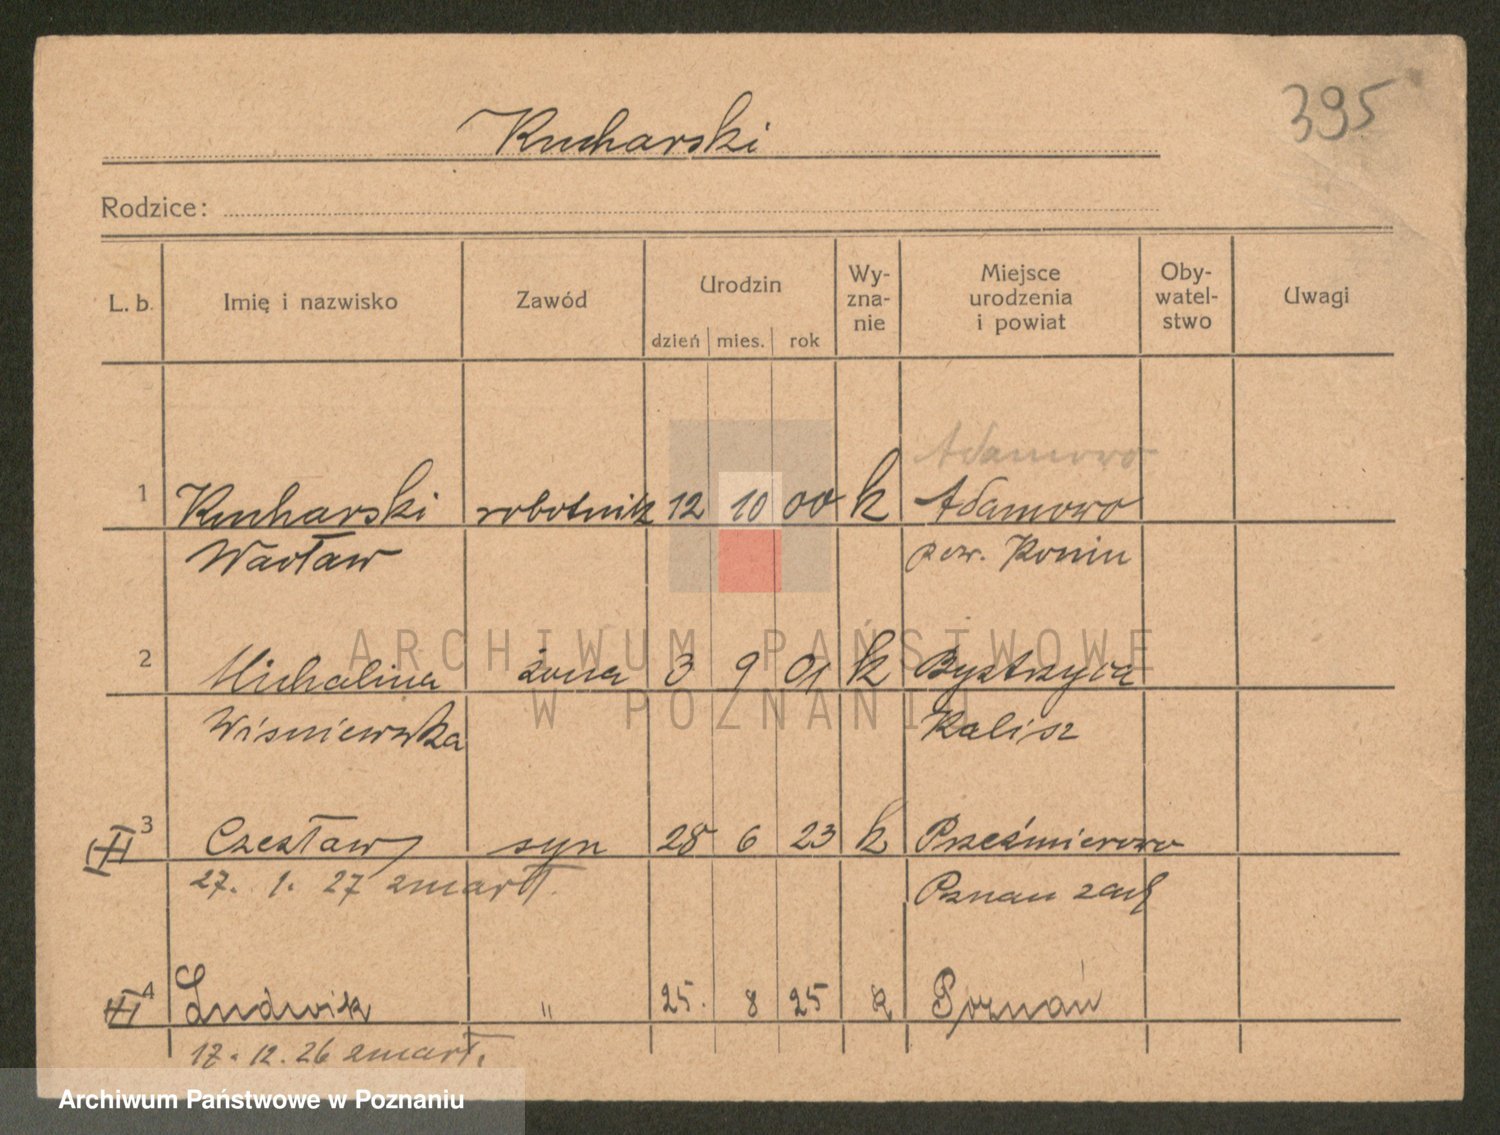 395
Kucharski
Rodzice:
L. b. Imię i nazwisko Zawód Urodzin dzień mies. rok Wy-zna-nie Miejsce urodzenia i powiat Oby-watel-stwo Uwagi
Adamowo
1 Kucharski robotnik 12 10 00 k Adamowo
Wacław pow. Konin
ARCHIWUM PAŃSTWOWE
2 Michalina żona 3 9 01 k Bystrzyca
W POZNANIU
Wiśniewska Kalisz
3 Czesław syn 28 6 23 k Przeźmierowo
27. 1. 27 zmarł. Poznań zach
4 Ludwik " 25. 8 25 k Poznań
17. 12. 26 zmarł.
Archiwum Państwowe w Poznaniu